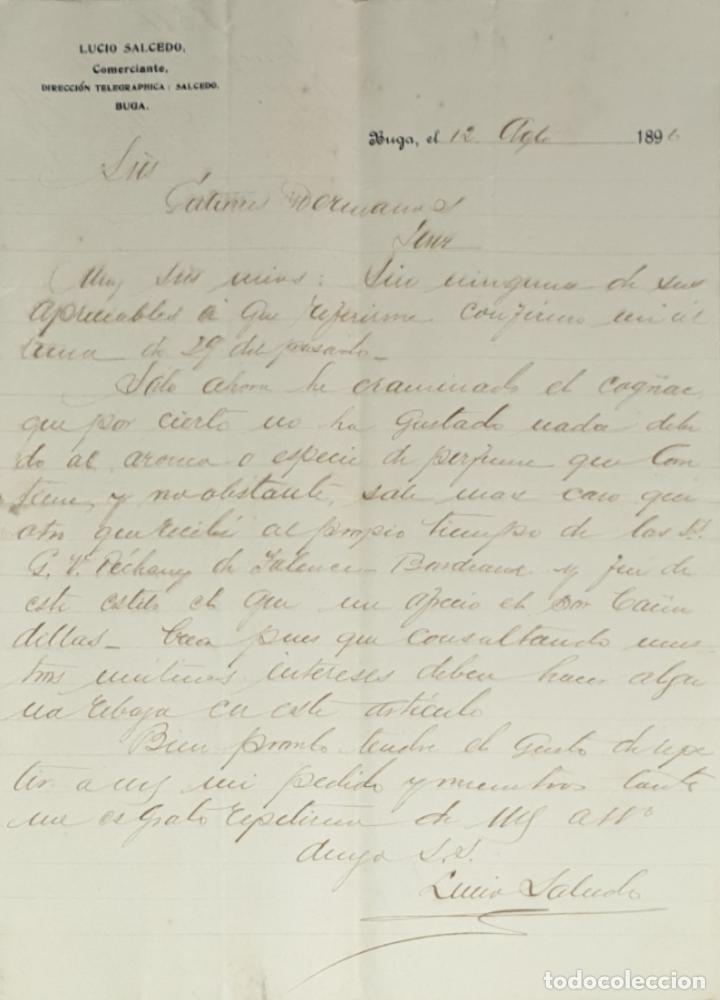 LUCIO SALCEDO,
Comerciante.
DIRECCIÓN TELEGRAPHICA: SALCEDO.
BUGA.
Buga, el 12 Agto 1896
Sres
Hermanos
Muy Sres mios: Sin ninguna de sus
apreciables á que referirme confirmo mi úl
tima de 29 del pasado_
Sólo ahora he examinado el cogñac
que por cierto no ha gustado nada debi
do al aroma o especie de perfume que con
tiene, y no obstante, sale mas caro que
otro que recibí al propio tiempo de los Ss
G. V. de Talence_ Bordeaux y fué de
este estilo el que me el Sor
_ Creo pues que consultando nues-
tros mutuos intereses deben hacer algu
na rebaja en este artículo
Bien pronto tendré el gusto de repe
tir a my mi pedido y mientras tanto
me es grato repetirme de my atto
amgo S.S.
Lucio Salcedo
todocoleccion